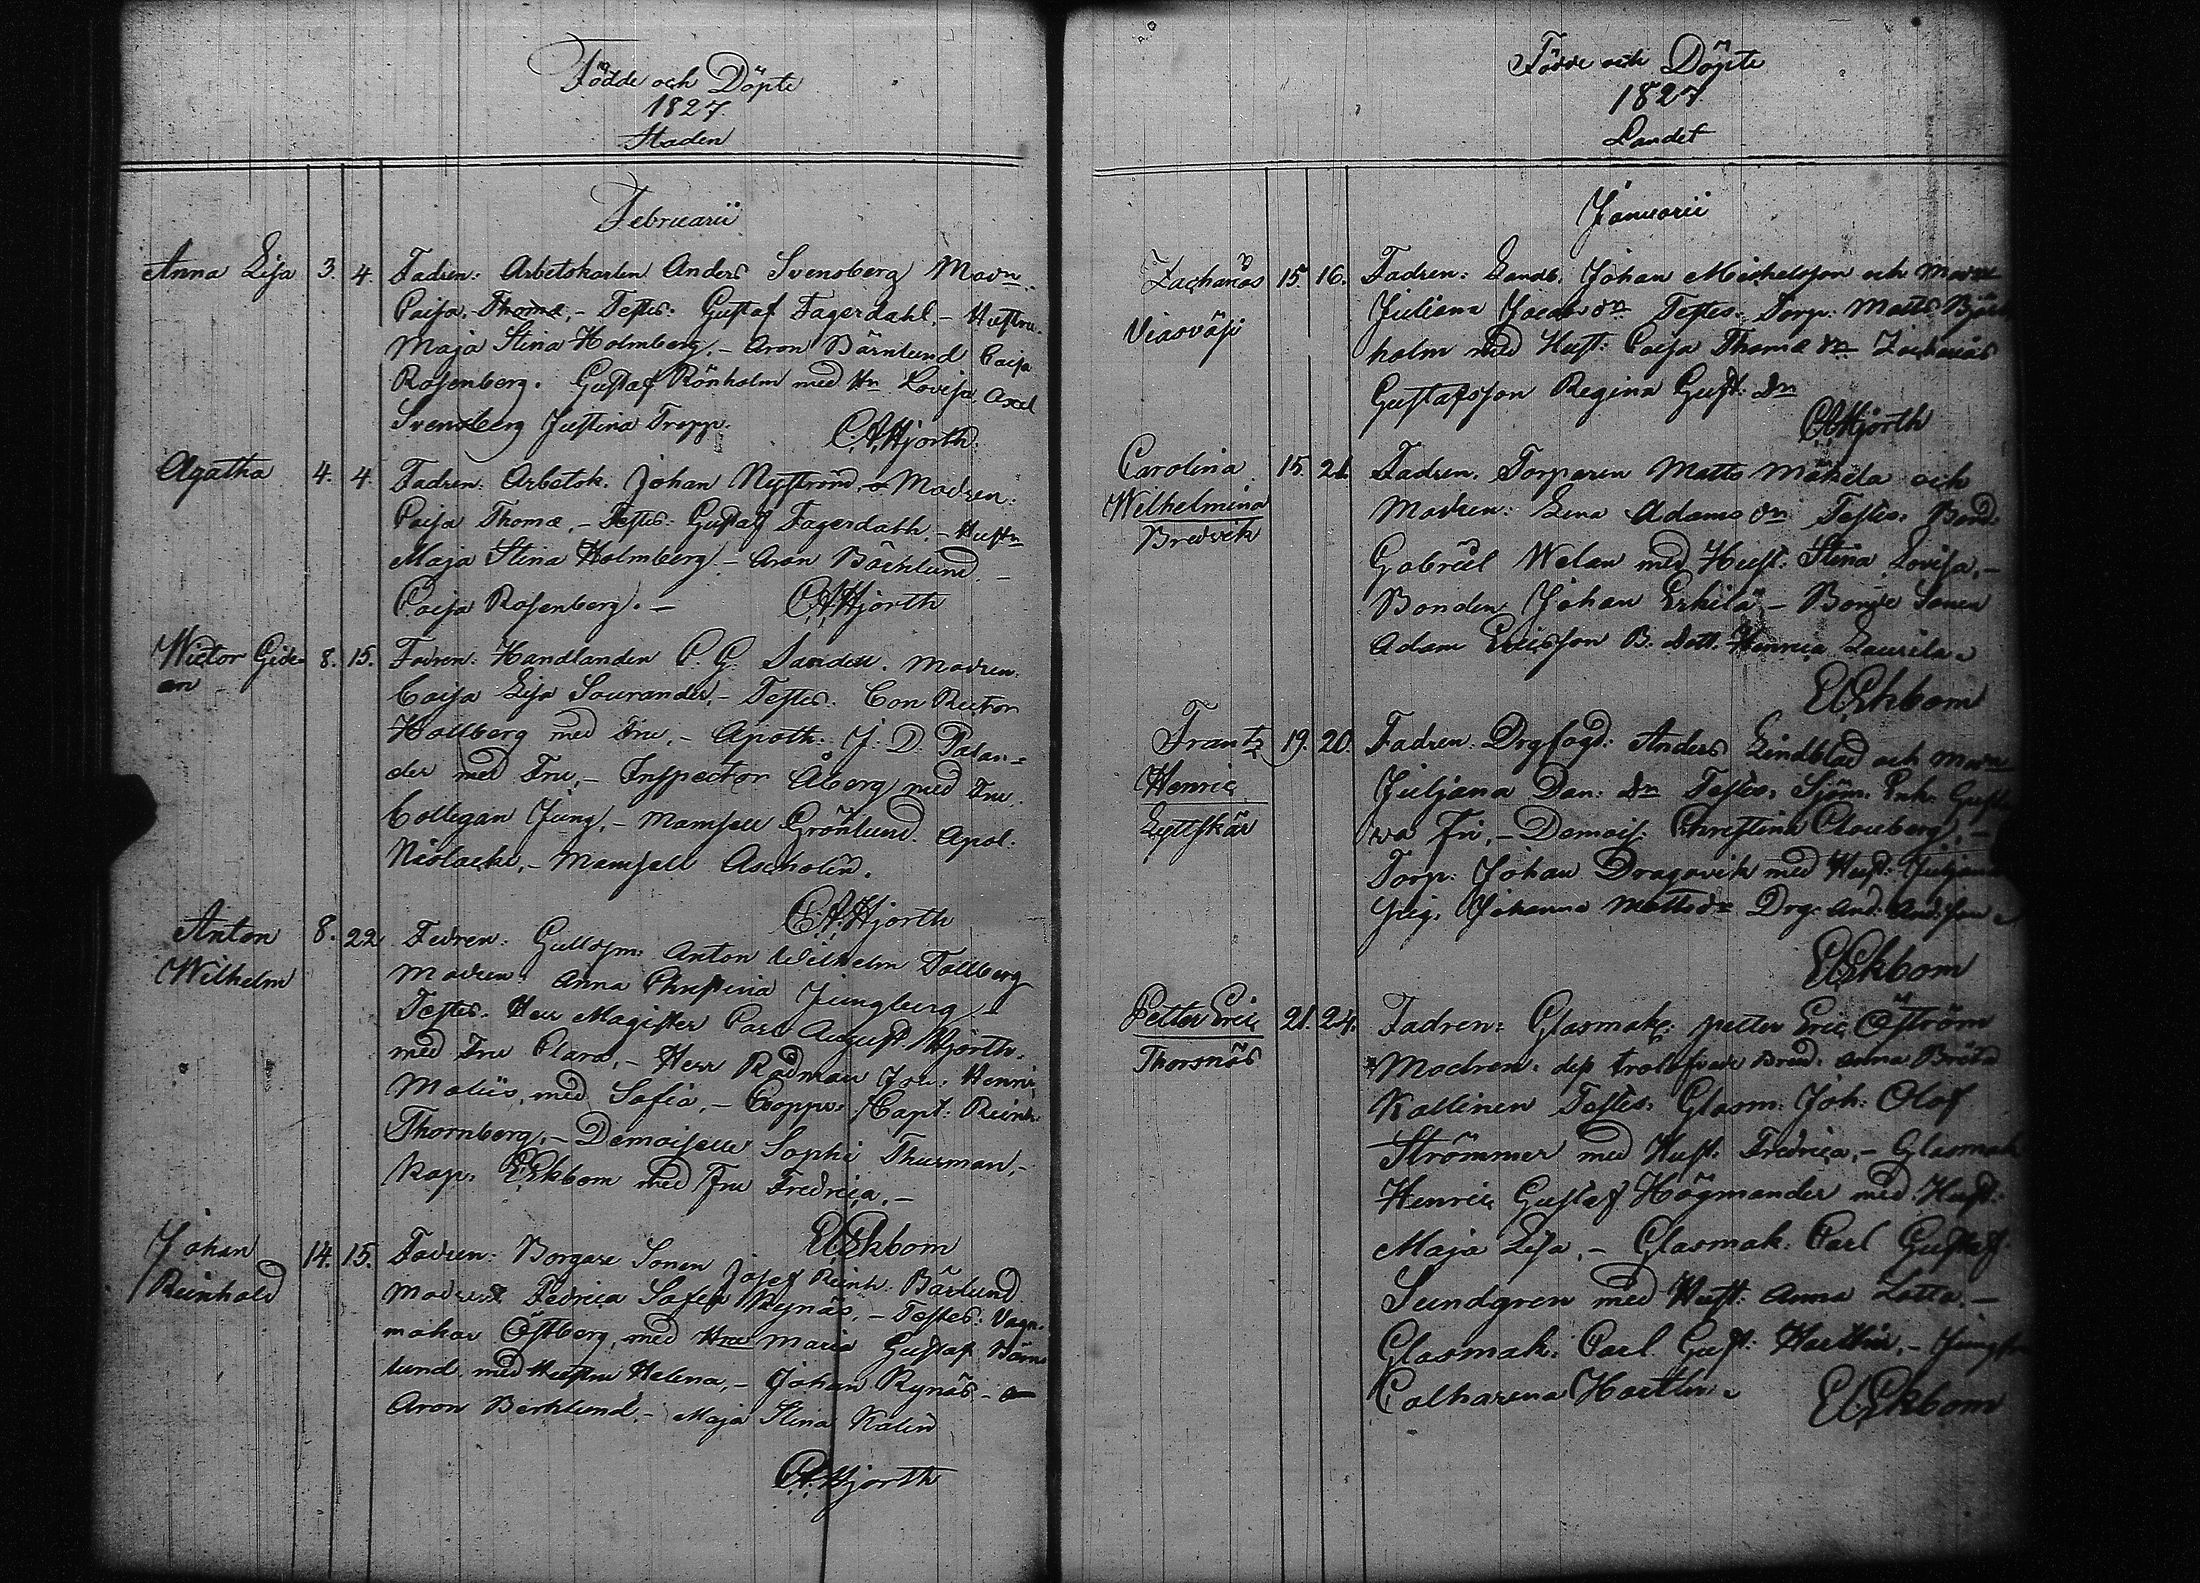 Födde och Döpte
1827.
Staden
Februarii
Anna Lisa 3. 4. Fadren: Arbetskarlen Anders Svensberg Modn.
Caisa Thomæ, – Testes: Gustaf Fagerdahl, – Hustru
Maja Stina Holmberg, – Aron Bärnlund Caisa
Rosenberg. Gustaf Rönholm med Hn Lovisa, Axel
Svensberg Justina Tropp.
CAHjorth.
Agatha 4. 4. Fadren: Arbetsk. Johan Nyström, o Modren:
Caisa Thomæ, – Testes: Gustaf Fagerdahl, – Hustn
Maja Stina Holmberg, – Aron Bärnlund, –
Caisa Rosenberg. –
CAHjorth
Wictor Gide- 8. 15. Fadren: Handlanden C. G. Sandell. Modren:
on
Caisa Lisa Sourander, – Testes: Con Rector
Hallberg med Fru, – Apoth: J: D: Palan-
der med Fru, – Inspector Åberg med Fru,
Collegan Jung, – Mamsell Grönlund. Apol.
– Mamsell Ascholin.
CAHjorth
Anton 8. 22 Fadren: Guldsm: Anton Wilhelm Tallberg
Wilhelm
Modren: Anna Christina Jungberg –
Testes. Herr Magister Carl August Hjorth.
med Fru Clara, – Herr Rådman Joh: Henric
med Sofia, – Coppv: Capt: Reinh:
Thornberg, – Demoiselle Sophi Thurman, –
Kap: EEkbom med Fru Fredrica, –
EEkbom
Johan 14. 15. Fadren: Borgare Sonen Josef Reinh: Bärlund
Reinhold
Modren Fedrica Sofia Rynäs, – Testes: Vagn-
makar Östberg, med Hru Maria Gustaf Bärn-
lund med Hustru Helena, – Johan Rynäs –
Aron Berklund, – Maja Stina Kalin
CAHjorth
Födde och Döpte
1827
Landet
Januarii
Zacharias 15. 16. Fadren: Landb. Johan Michelsson och Modn
Viasväsi
Juliana Jacobs dn Testes. Torp: Matts Björk
holm med Hust: Caisa Thomæ dn Zacharias
Gustafsson Regina Gust: dn
CAHjorth
Carolina 15. 21. Fadren. Torparen Matts Mäkelä och
Wilhelmina
Bredvik
Modren: Lena Adams dn Testes. Bond:
Gabriel Welan med Hust: Stina Lovisa, –
Bonden Johan Erkilä – Bonde Sonen
Adam Ericsson B. dott. Henrica Laurila
EEkbom
Frantz 19. 20. Fadren: Drgfogd: Anders Lindblad och Modn
Henric
Lyttskär
Juljana Dan: dn Testes. Sjöm: Enk: Gusta
va Fri, – Demois: Christina Clouberg, –
Torp: Johan Dragsvik med Hust: Juljana
Pig. Johanna Mattsdr Drg: And: And:son
EEkbom
Petter Eric 21. 24. Fadren: Glasmak: petter Eric Öström
Thorsnäs
Modren: dess trolofvade Brud: Anna Brita
Kallinen Testes: Glasm: Joh: Olof
Strömmer med Hust: Fredrica, – Glasmak
Henric Gustaf Högmander med Hust:
Maja Lisa, – Glasmak: Carl Gustaf
Sundgren med Hust: Anna Lotta. –
Glasmak: Carl Gust: Haertlin, – Jungfru
Catharina Haertlin
EEkbom